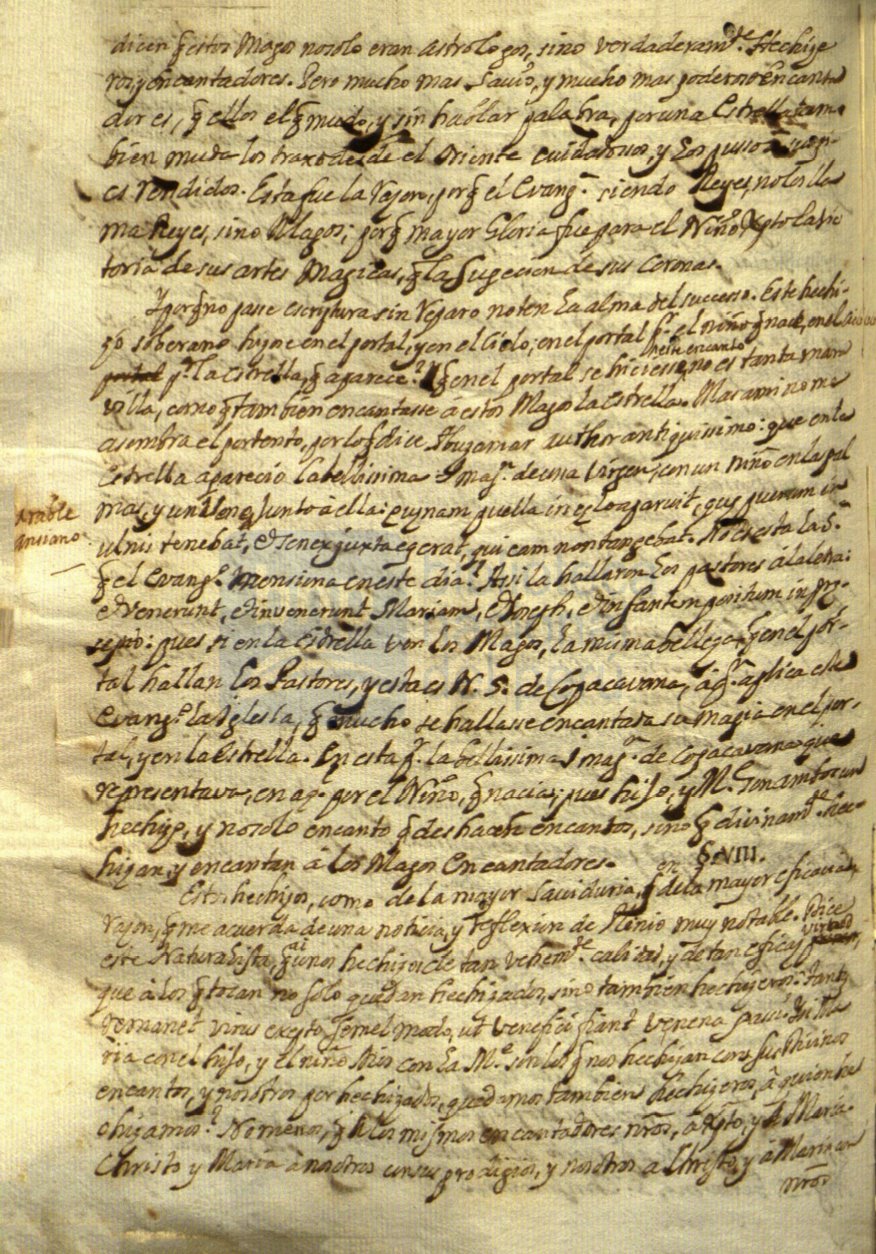 dicen q̃ estos Magos no solo eran astrologos, sino verdaderamᵗᵉ. Hechize
ros, y encantadores. Pero mucho mas Savio, y mucho mas poderoso encanta
dor es, q̃ ellos el q̃ mudo, y sin hablar palabra, por una Estrella tam
bien muda los traxo desde el Oriente cuidadosos, y los puso a sus pi-
es rendidos. Esta fue la rezon, porq̃ el Evangᵃ. siendo Reyes, no los lla
ma Reyes, sino Magos; porq̃ mayor Gloria fue para el Niño Xpto la vic
toria de sus artes Magicas, q̃ la Sugecion de sus Coronas.
Y porq̃ no passe escryptura sin reparo noten la alma del successo. Este hechi-
zo soberano hizose en el portal, y en el Cielo; en el portal pʳ. el niño q̃ nace, en el
este encanto
pʳ. la estrella, q̃ aparece? Y q̃ en el portal se hiciesse no es tanta mara
villa, como q̃ tambien encantasse á estos Magos la estrella. Mas a mi no me
asombra el portento, por lo q̃ dice Abuzamar author antiquissimo: que en la
estrella aparecio la bellissima Imagⁿ. de una Virgen, con un niño en las pal
mas, y un junto à ella: quæ puerum in
Arabe
Anciano
ulnis tenebat, & senex juxta eam non tangebat. No es esta la Sᵃ.
q̃ el Evangᵒ. menciona en este dia? Assi la hallaron los pastores á la letra:
& venerunt, & invenerunt Mariam, & Joseph, & infantem positum in præ-
sepio: pues si en la estrella ven los Magos, la misma belleza, q̃ en el por-
tal hallan los Pastores, y esta es N. S. de Copacavana, à qⁿ. aplica este
Evangᵒ. la Iglesia, q̃ mucho se hallasse encantada su magia en el por-
tal, y en la estrella. En esta pʳ. la bellissima Imagⁿ. de Copacavana que
representava, en aq̃. por el Niño, q̃ nacia; pues hijo, y Mᵉ. son ambos un
hechizo, y no solo encanto q̃ deshace encantos, sino q̃ divinamᵗᵉ. he-
hizan, y encantan à los Magos Encantadores.
§. VIII.
en
Estos hechizos, como de la mayor Saviduria, q̃ de la mayor eficacia
razon, q̃ me acuerda de una noticia, y reflexion de Plinio muy notable. Dice
virtud
este Naturalista, q̃ ai unos hechizos de tan vehemᵗᵉ. calidad, y de tan eficaz
que à los q̃ tocan no solo quedan hechizados, sino tambien hechizeros:
virus semel modo, ut venefici fiant venena
ria con el hijo, y el niño Dios con la Mᵉ. son los q̃ nos hechizan con sus Divinos
encantos, y nosotros por hechizados, quedamos tambien hechizeros, á quien he
chizamos? No menos, q̃ à los mismos encantadores nr̃os, a Xpto, y à Maria.
Christo y Maria à nosotros con sus prodigios, y nosotros a Christo, y a Maria con
nr̃os